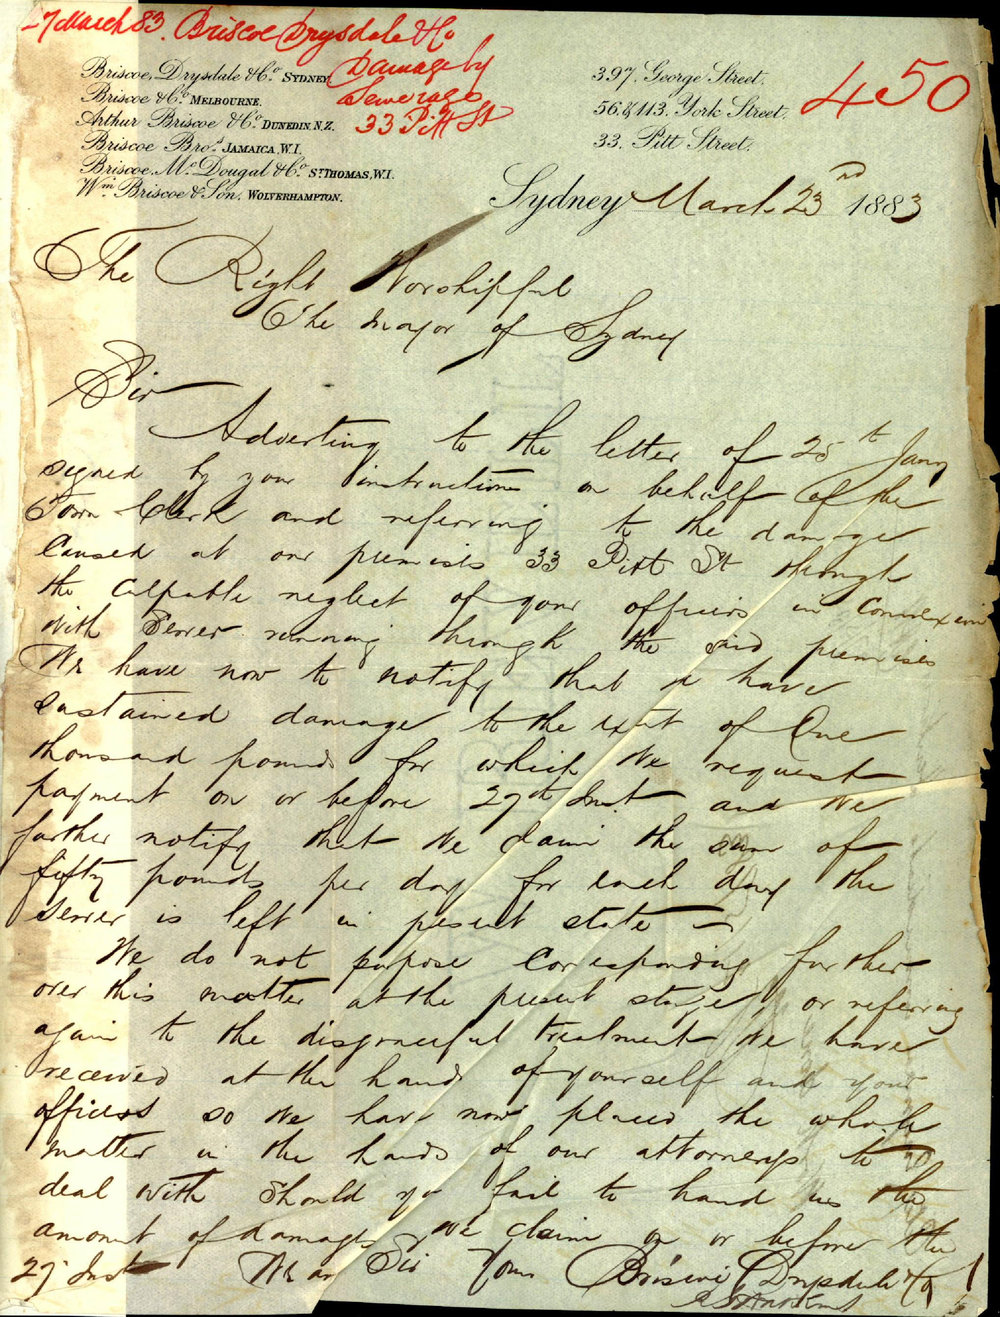 27 March 83. Briscoe Drysdale & Co
Damage by
Sewerage
33 Pitt St
450
Briscoe, Drysdale & Co. SYDNEY.
Briscoe & Co. MELBOURNE.
Arthur Briscoe & Co. DUNEDIN. N.Z.
Briscoe Bros. JAMAICA, W.I.
Briscoe, McDougal & Co. ST THOMAS, W.I.
Wm. Briscoe & Son. WOLVERHAMPTON.
397. George Street.
56. & 113. York Street.
33. Pitt Street.
Sydney March 23rd 1883
The Right Worshipful
The Mayor of Sydney
Sir
Adverting to the letter of 25th Jany
signed by your instructions on behalf of the
Town Clerk and referring to the damage
Caused at our premises 33 Pitt St through
the culpable neglect of your officers in connexion
with Sewer running through the said premises
We have now to notify that we have
sustained damage to the extent of One
thousand pounds for which we request
payment on or before 27th Inst and we
further notify that we claim the sum of
fifty pounds per day for each day the
Sewer is left in present state —
We do not purpose corresponding further
over this matter at the present stage, or referring
again to the disgraceful treatment we have
received at the hands of yourself and your
officers so we have now placed the whole
matter in the hands of our attorneys to
deal with should you fail to hand us the
amount of damages we claim on or before the
27 Inst We are Sir Yours Briscoe Drysdale & Co